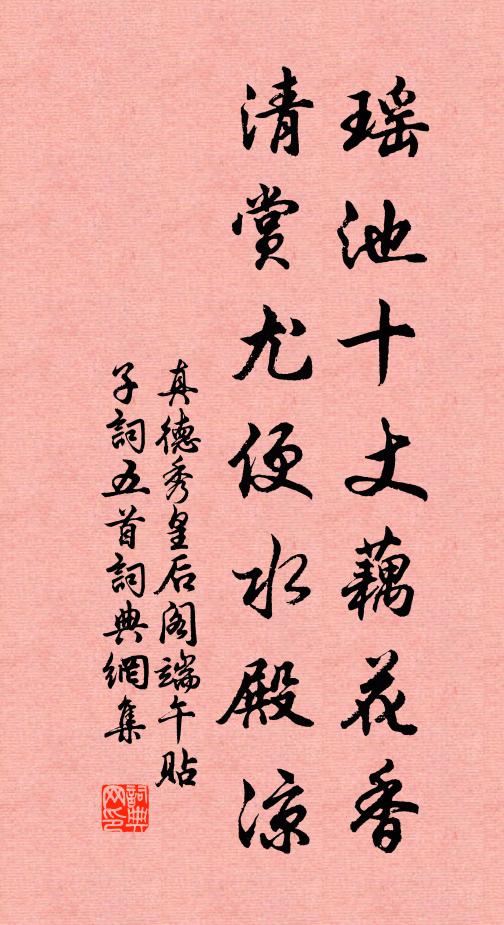 瑶池十丈藕花香
清赏尤便水殿凉
真德秀皇后阁端午贴
子詞五首詞典網集
詞典网印